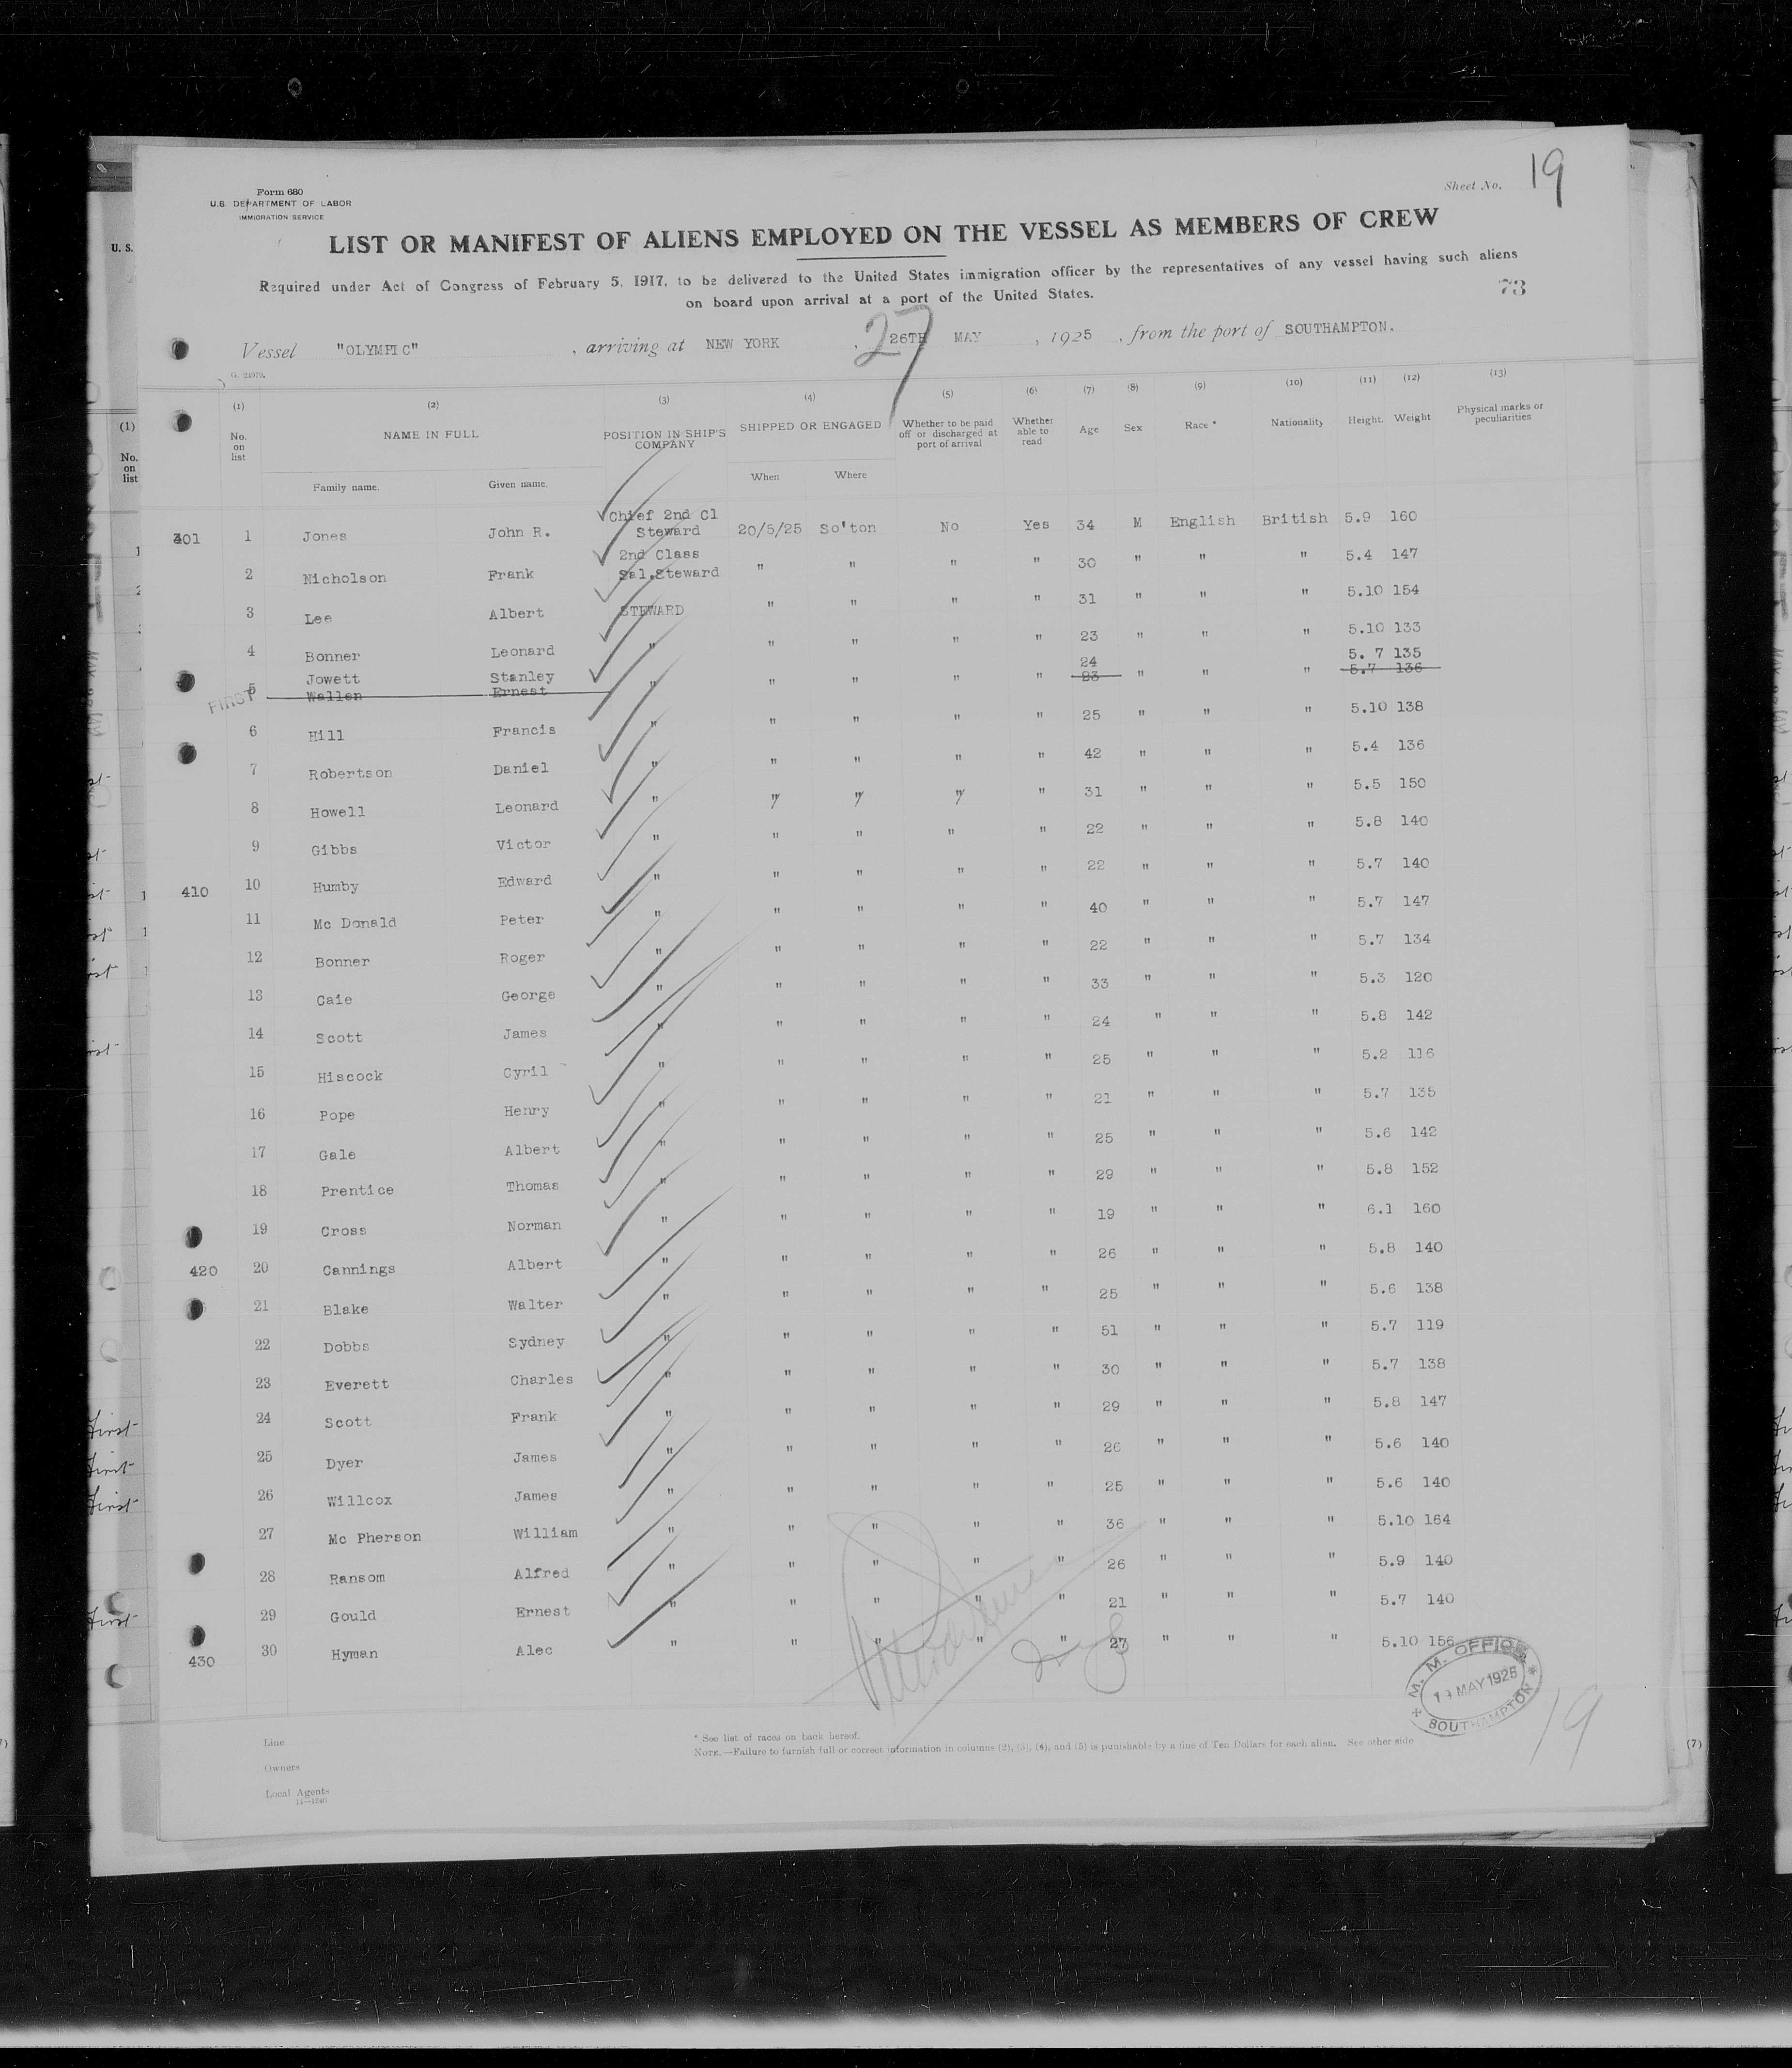 19
Sheet No.
Form 680
U.S. DEPARTMENT OF LABOR
IMMIGRATION SERVICE
LIST OR MANIFEST OF ALIENS EMPLOYED ON THE VESSEL AS MEMBERS OF CREW
Required under Act of Congress of February 5, 1917, to be delivered to the United States immigration officer by the representatives of any vessel having such aliens
on board upon arrival at a port of the United States.
73
Vessel "OLYMPIC" , arriving at NEW YORK , 27 26TH MAY , 1925 , from the port of SOUTHAMPTON.
(1) (2) (3) (4) (5) (6) (7) (8) (9) (10) (11) (12) (13)
No. on list NAME IN FULL POSITION IN SHIP'S COMPANY SHIPPED OR ENGAGED Whether to be paid off or discharged at port of arrival Whether able to read Age Sex Race * Nationality Height. Weight Physical marks or peculiarities
Family name. Given name. When Where
401 1 Jones John R. Chief 2nd Cl Steward 20/5/25 So'ton No Yes 34 M English British 5.9 160
2 Nicholson Frank 2nd Class Sal.Steward " " " " 30 " " " 5.4 147
3 Lee Albert STEWARD " " " " 31 " " " 5.10 154
4 Bonner Leonard " " " " " 23 " " " 5.10 133
Jowett Stanley 24 5. 7 135
FIRST 5 Wallen Ernest " " " " " 23 " " " 5.7 136
6 Hill Francis " " " " " 25 " " " 5.10 138
7 Robertson Daniel " " " " " 42 " " " 5.4 136
8 Howell Leonard " " " " " 31 " " " 5.5 150
9 Gibbs Victor " " " " " 22 " " " 5.8 140
410 10 Humby Edward " " " " " 22 " " " 5.7 140
11 Mc Donald Peter " " " " " 40 " " " 5.7 147
12 Bonner Roger " " " " " 22 " " " 5.7 134
13 Caie George " " " " " 33 " " " 5.3 120
14 Scott James " " " " " 24 " " " 5.8 142
15 Hiscock Cyril " " " " " 25 " " " 5.2 116
16 Pope Henry " " " " " 21 " " " 5.7 135
17 Gale Albert " " " " " 25 " " " 5.6 142
18 Prentice Thomas " " " " " 29 " " " 5.8 152
19 Cross Norman " " " " " 19 " " " 6.1 160
420 20 Cannings Albert " " " " " 26 " " " 5.8 140
21 Blake Walter " " " " " 25 " " " 5.6 138
22 Dobbs Sydney " " " " " 51 " " " 5.7 119
23 Everett Charles " " " " " 30 " " " 5.7 138
24 Scott Frank " " " " " 29 " " " 5.8 147
25 Dyer James " " " " " 26 " " " 5.6 140
26 Willcox James " " " " " 25 " " " 5.6 140
27 Mc Pherson William " " " " " 36 " " " 5.10 164
28 Ransom Alfred " " " " " 26 " " " 5.9 140
29 Gould Ernest " " " " " 21 " " " 5.7 140
430 30 Hyman Alec " " " " " 27 " " " 5.10 156
M. M. OFFICE
MAY 1925
SOUTHAMPTON
19
Line
Owners
Local Agents
14—1240
* See list of races on back hereof.
NOTE.—Failure to furnish full or correct information in columns (2), (3), (4), and (5) is punishable by a fine of Ten Dollars for each alien. See other side
(7)
U. S.
(1)
No.
on
list
First
First
First
First